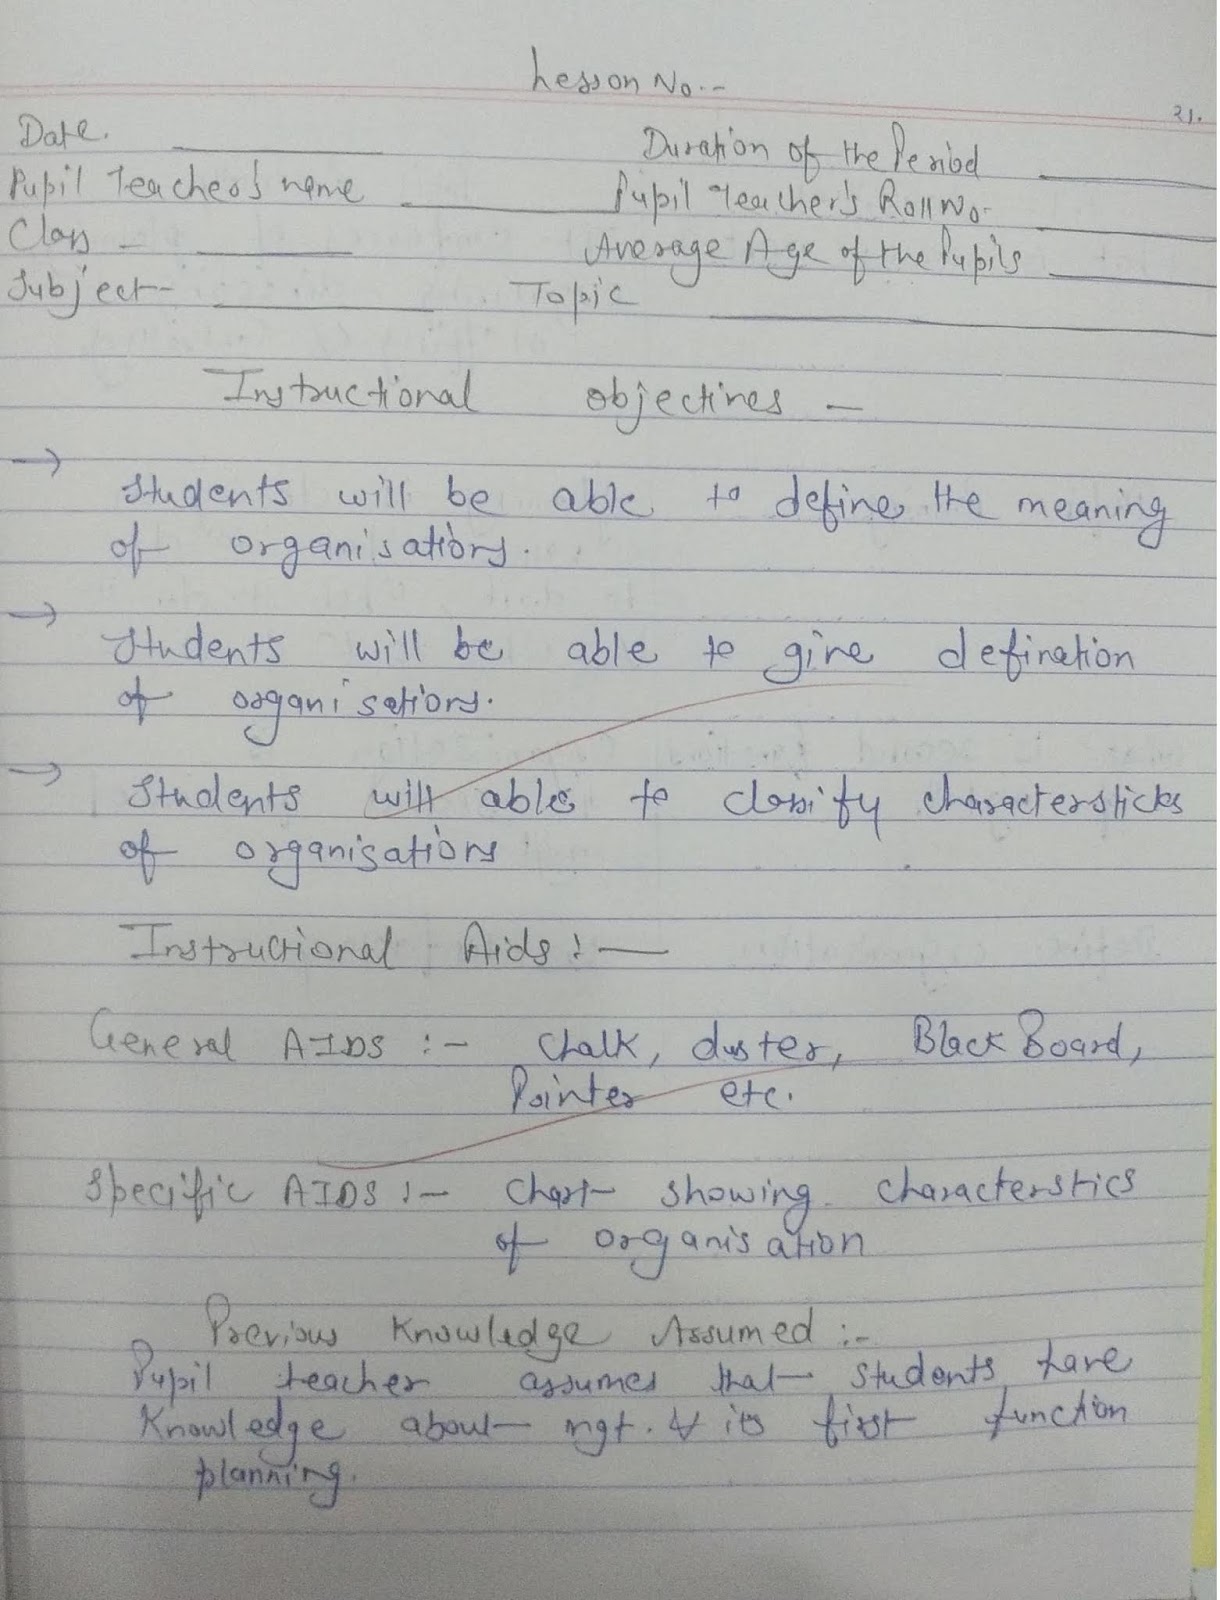 Lesson No.-
21.
Date. Duration of the Period
Pupil Teacher's name Pupil Teacher's Roll No.
Class - Average Age of the Pupils
Subject- Topic
Instructional objectives -
→ Students will be able to define the meaning
of organisations.
→ Students will be able to give defination
of organisations.
→ Students will able to classify charactersticks
of organisations
Instructional Aids :-
General AIDS :- Chalk, duster, Black Board,
Pointer etc.
Specific AIDS :- Chart showing characterstics
of organisation
Previous Knowledge Assumed :-
Pupil teacher assumes that students have
Knowledge about mgt. & its first function
planning.